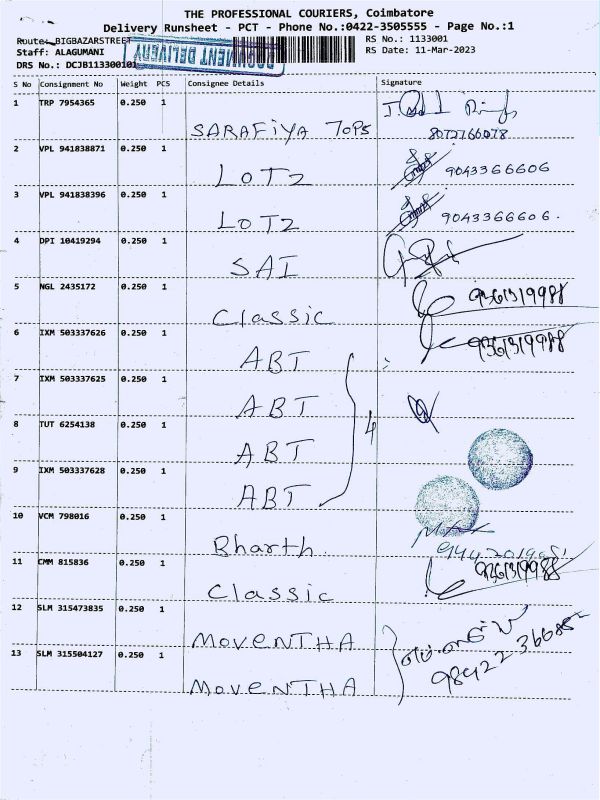 THE PROFESSIONAL COURIERS, Coimbatore
Delivery Runsheet - PCT - Phone No.:0422-3505555 - Page No.:1
Route: BIGBAZARSTREET
RS No.: 1133001
Staff: ALAGUMANI
RS Date: 11-Mar-2023
DRS No.: DCJB11330010
DELIVERY
S No Consignment No Weight PCS Consignee Details Signature
1 TRP 7954365 0.250 1
SARAFIYA TOPS
8072766078
2 VPL 941838871 0.250 1
LOTZ 9043366606
3 VPL 941838396 0.250 1
LOTZ 9043366606.
4 DPI 10419294 0.250 1
SAI
5 NGL 2435172 0.250 1
Classic 9361319988
6 IXM 503337626 0.250 1 9361319988
ABT
7 IXM 503337625 0.250 1
ABT
4
8 TUT 6254138 0.250 1
ABT
9 IXM 503337628 0.250 1
ABT
10 VCM 798016 0.250 1
Bharth.
11 CMM 815836 0.250 1 9361319988
Classic
12 SLM 315473835 0.250 1
MOVENTHA
13 SLM 315504127 0.250 1
MOVENTHA